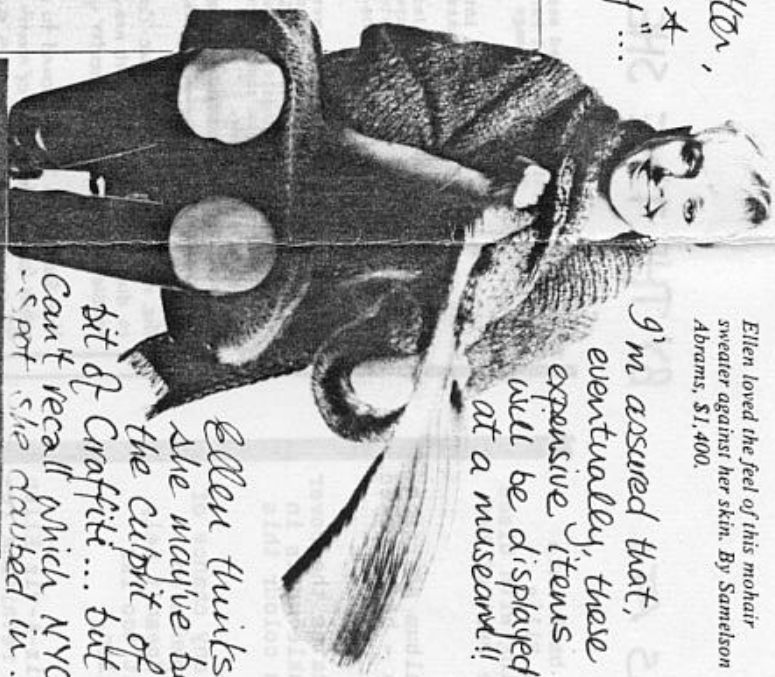 tter,
" ...
Ellen loved the feel of this mohair
sweater against her skin. By Samelson
Abrams, $1,400.
I'm assured that,
eventually, these
expensive items
will be displayed
at a museam!!
Ellen thinks
she may've b
the culprit of
bit of Graffiti... but
Can't recall which NYC
spot she daubed in.